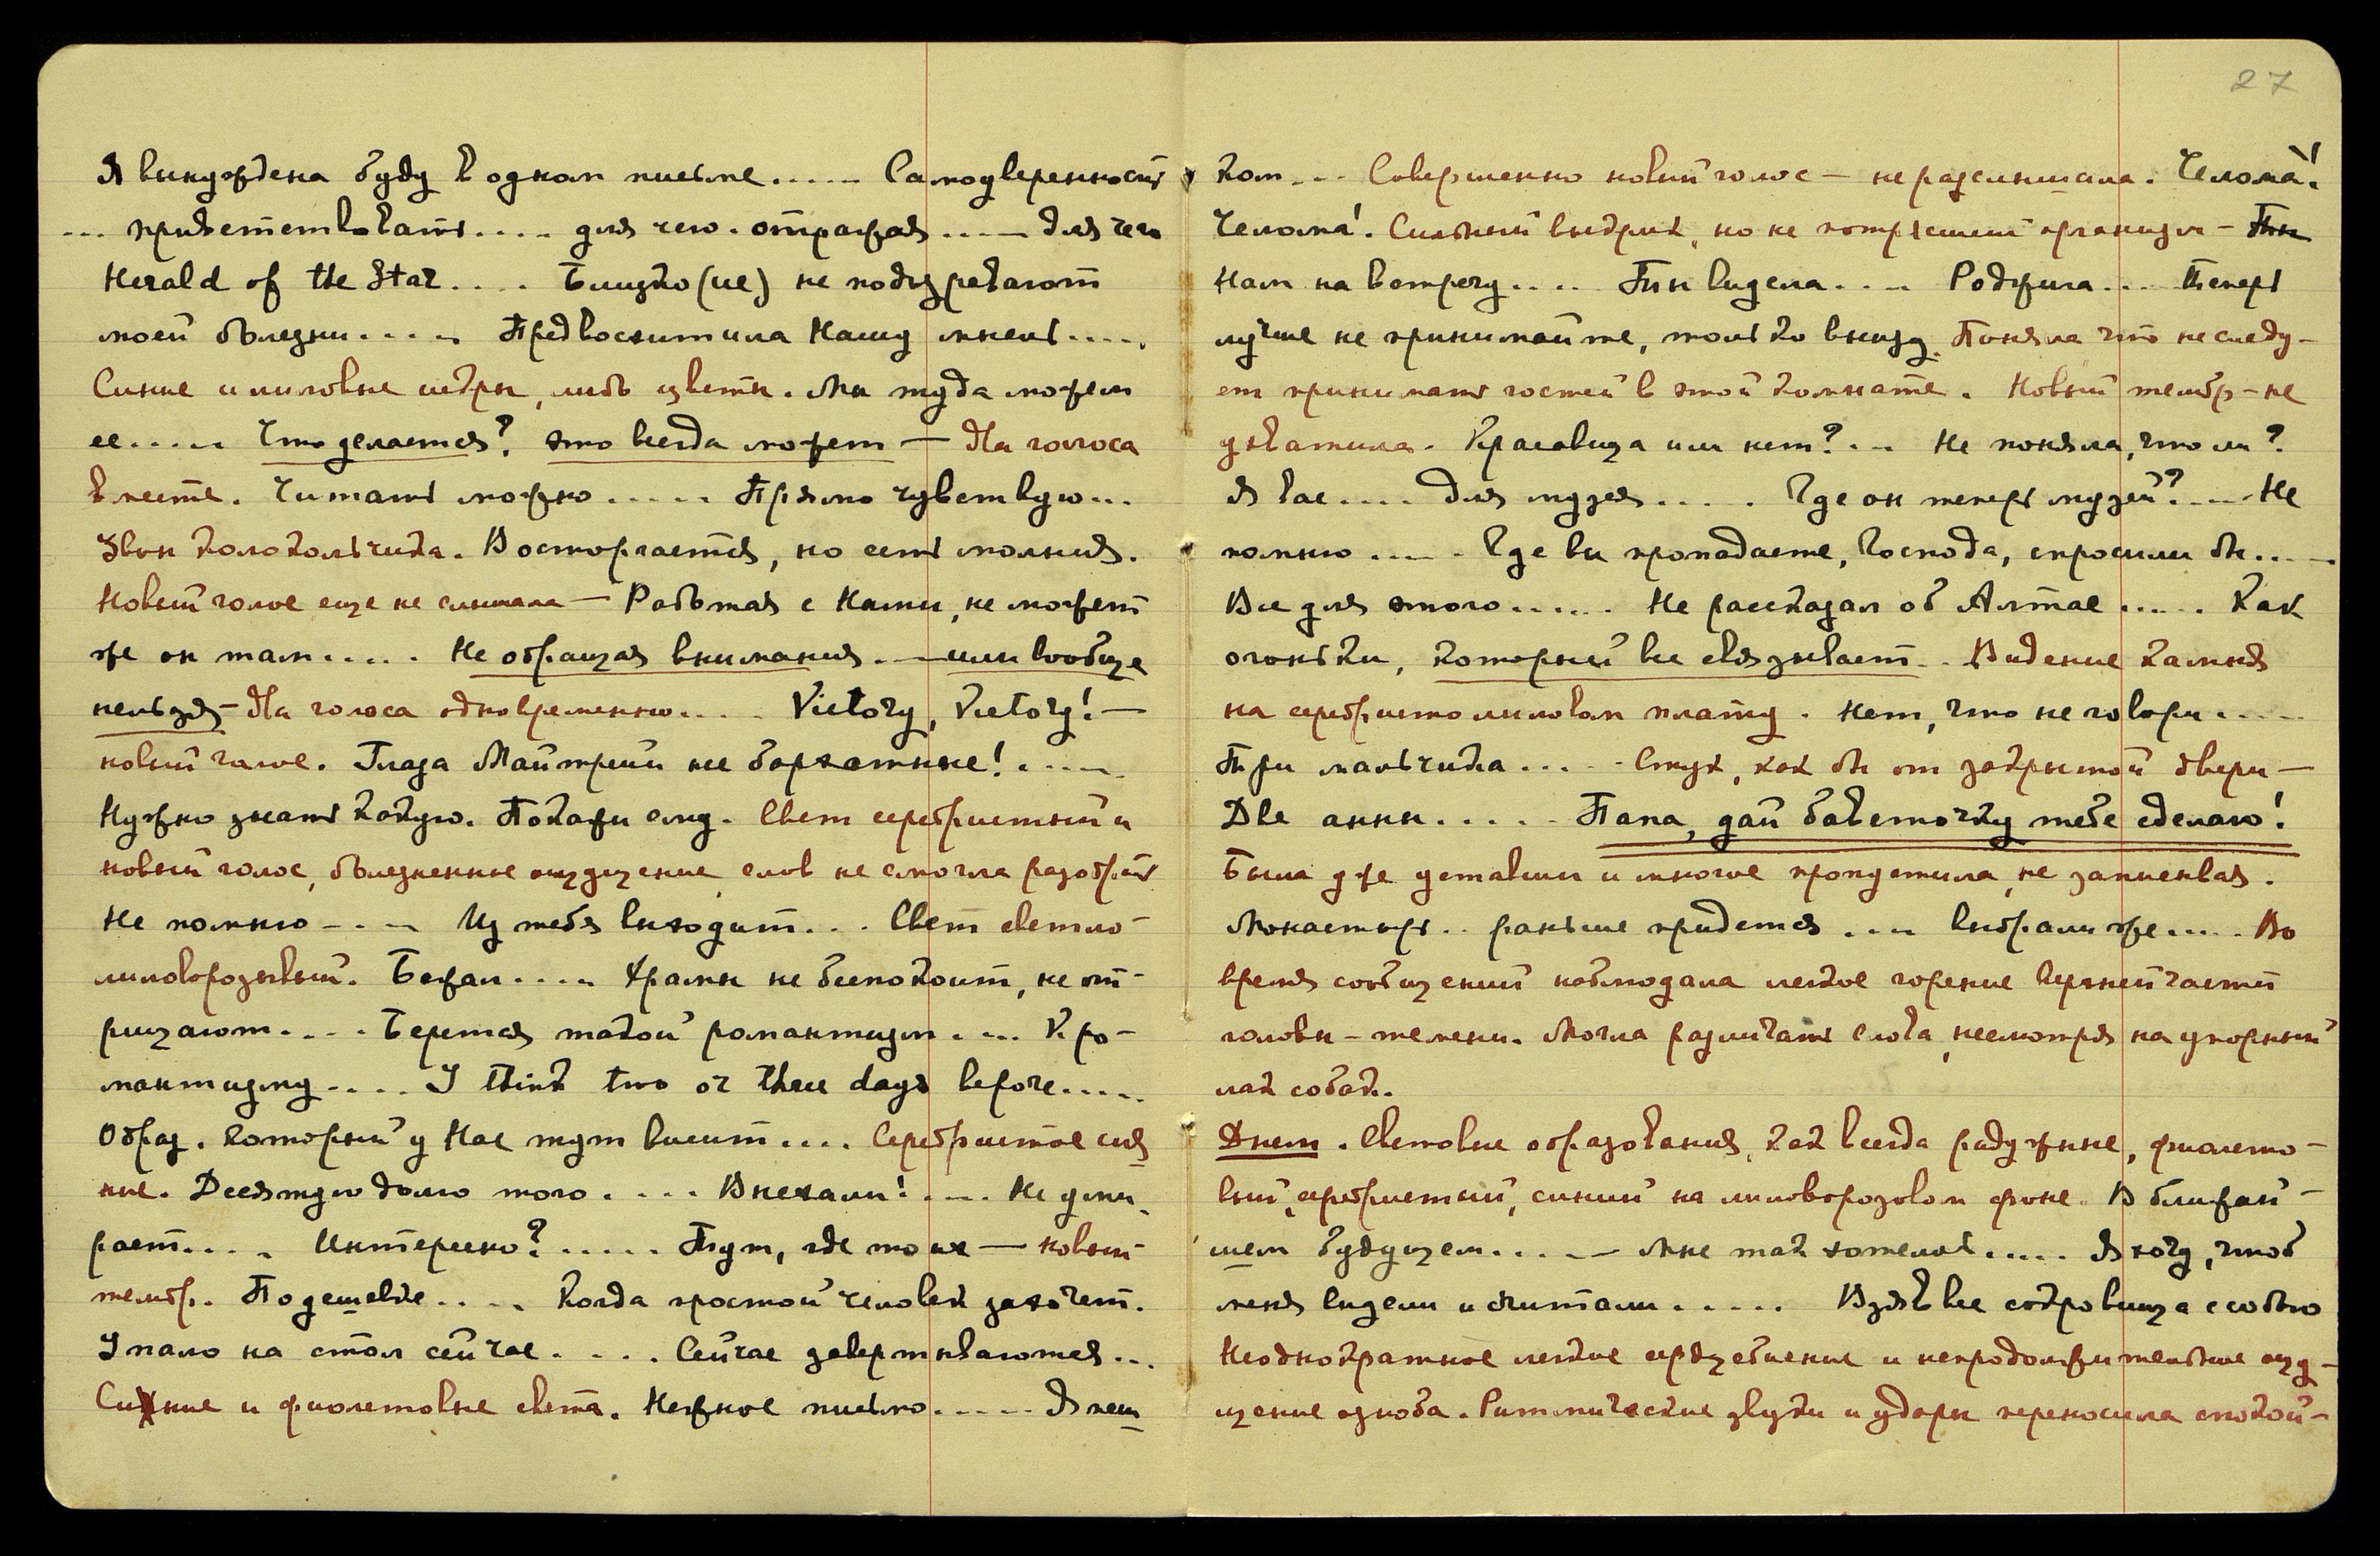 Я вынуждена буду в одном письме..... Самоуверенность
... приветствовать.... для чего. отражая..... Для чего
Herald of the Star.... Близко(ие) не подозревают
моей болезни..... Предвосхитила Нашу мысль.....
Синие и лиловые искры, либо цветы. Мы туда можем
ее..... Что делается? это всегда может — Два голоса
вместе. Читать можно..... Прямо чувствую...
Звон колокольчика. Восторгается, но есть молния.
Новый голос еще не слышала — Работая с Нами, не может
же он там..... Не обращая внимания. — или вообще
нельзя — Два голоса одновременно..... Victory, Victory! —
новый голос. Глаза Майтрейи не бархатные!.....
Нужно знать какую. Покажи ему. Свет серебристый и
новый голос, болезненные ощущение, слов не смогла разобрать
Не помню.... Из тебя выходит.... Свет светло-
лиловорозовый. Бежал.... Храмы не беспокоит, не от-
рицают.... Берется такой романтизм.... К ро-
мантизму.... I think two or three days before.....
Образ. который у Нас тут висит.... Серебристое сия
ние. Десятую долю того.... Внехали!.... Не уми-
рает.... Интересно?..... Тут, где то же — новый
тембр. Подешевле.... Когда простой человек захочет.
Упало на стол сейчас.... Сейчас завертываются...
Синие и фиолетовые света. Нежное письмо..... Я пеш
27
ком... Совершенно новый голос — не расслышала. Челома!
Челома! Сильный выдрик, но не потрясший организм — Ты
Нам на встречу.... Ты видела.... Роджина... Теперь
лучше не принимайте, только внизу. Поняла что не следу-
ет принимать гостей в этой комнате. Новый тембр — не
ухватила. Красавица или нет?... Не поняла, что ли?
Я вас.... Для музея..... Где он теперь музей?.... Не
помню..... Где вы пропадаете, Господа, спросили бы.....
Все для этого..... Не рассказал об Алтае..... Как
огоньки, который все связывает.. Видение камня
на серебристолиловом плату. Нет, что не говори.....
Три мальчика.... Стук, как бы от закрытой двери —
Две анны..... Папа, дай бабеточку тебе сделаю!
Была уже уставши и многое пропустила, не записывая.
Монастырь.. раньше придется.... выбрали же..... Во
время сообщений наблюдала легкое горение верхней части
головы — темени. Могла различать слова, несмотря на упорный
лай собак.
Днем. Световые образования, как всегда радужные, фиолето-
вый, серебристый, синий на лиловорозовом фоне. В ближай-
шем будущем..... Мне так хотелось..... Я хочу, чтоб
меня видели и считали..... Взяв все сокровища с собою
Неоднократное легкое сердцебиение и непродолжительные ощу-
щение озноба. Ритмические звуки и удары переносила спокой-